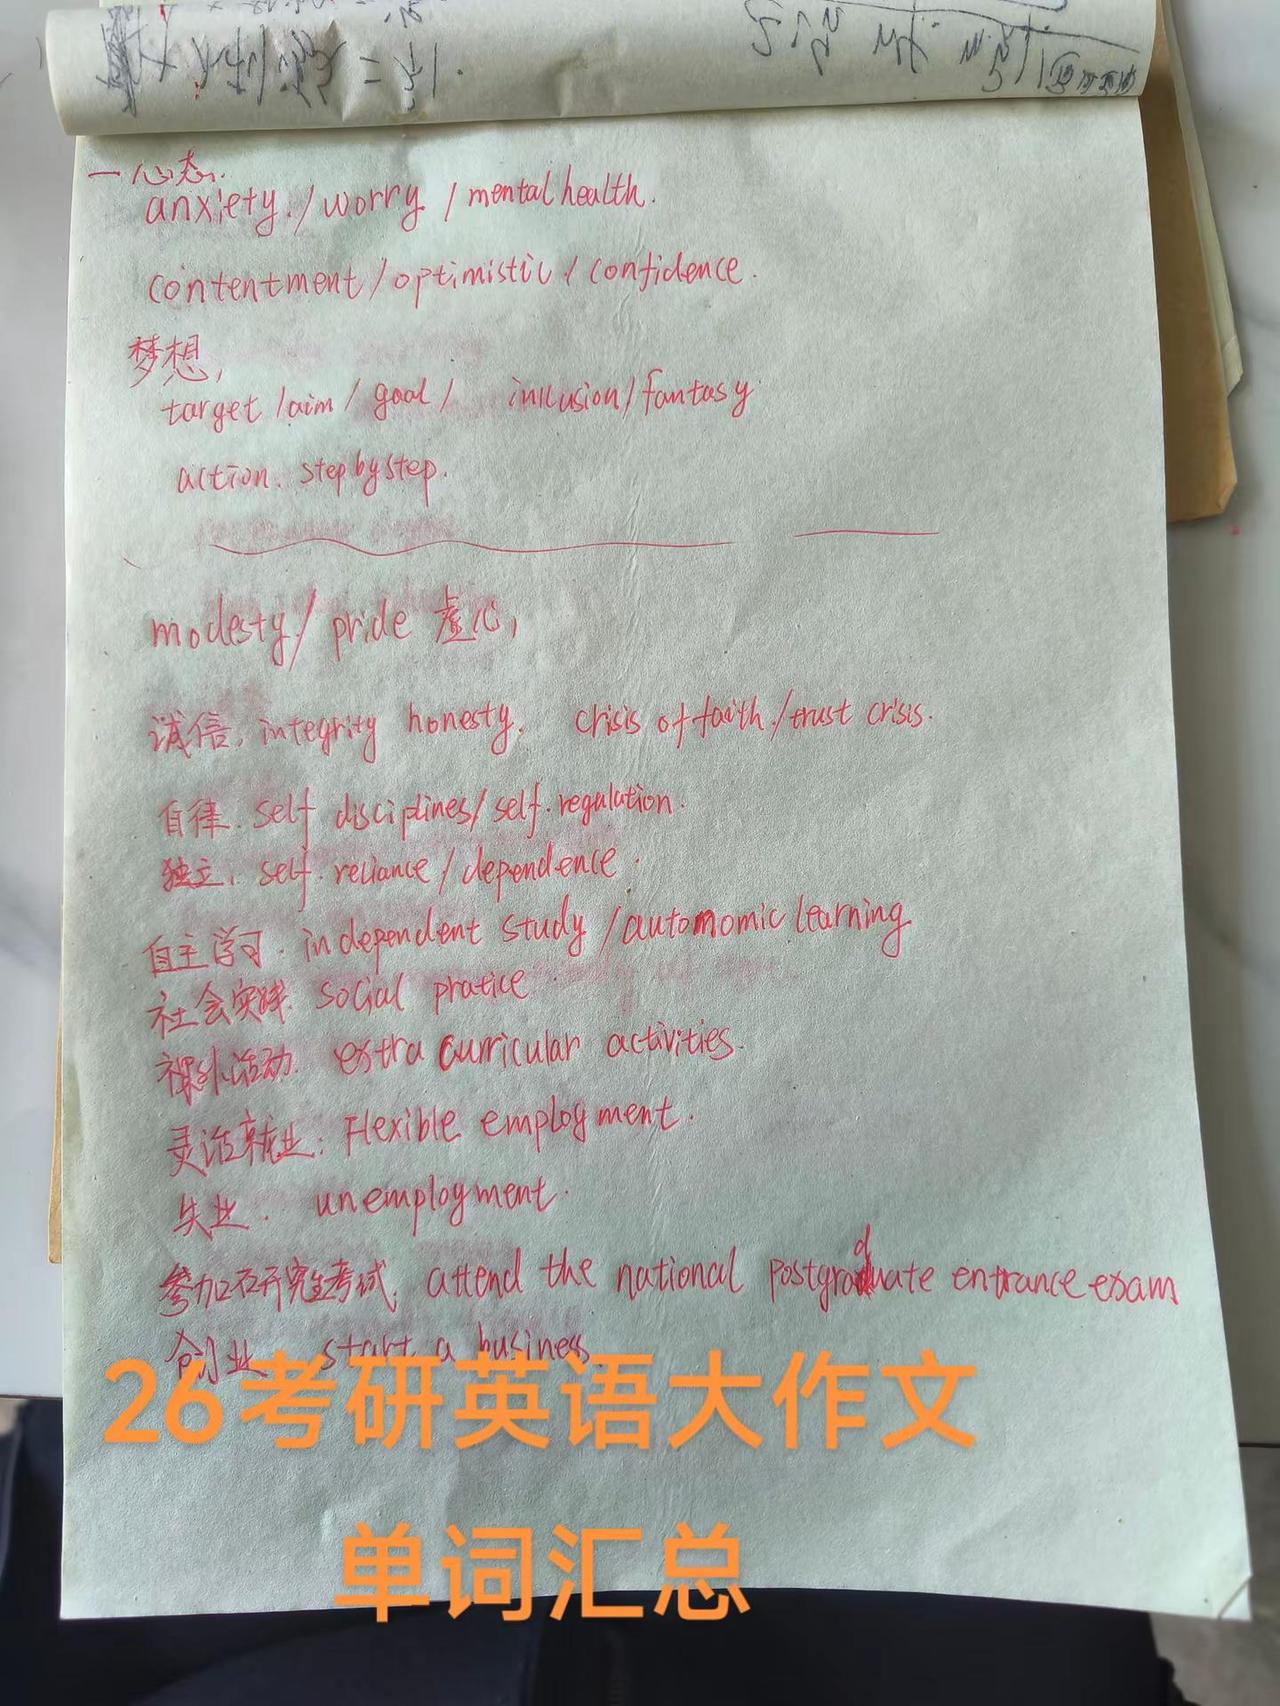 一心态.
anxiety./worry/mental health.
contentment/optimistic/confidence.
梦想,
target/aim/goal/ inllusion/fantasy
action. step by step.
modesty/pride 虚心,
诚信, integrity honesty. crisis of faith./trust crisis.
自律. self disciplines/self.regulation.
独立, self.reliance/dependence.
自主学习. independent study/automomic learning
社会实践. social pratice
课外活动. extra curricular activities.
灵活就业: Flexible employment.
失业. unemployment.
参加研究生考试. attend the national postgraduate entrance exam
创业 start a business.
26考研英语大作文
单词汇总